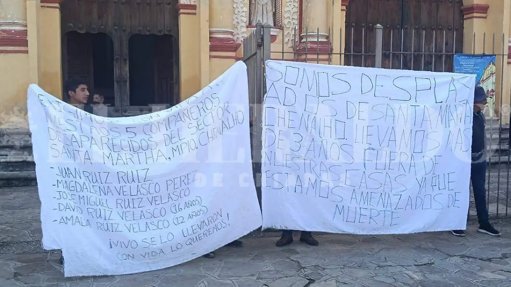 5 COMPAÑEROS
DESAPARECIDOS DEL SECTOR
SANTA MARTHA, MPIO, CHENALHO
-JUAN RUIZ RUIZ
-MAGDALENA VELASCO PEREZ
-JOSE MIGUEL RUIZ VELASCO
-DAVI RUIZ VELASCO (16 AÑOS)
-AMALA RUIZ VELASCO (12 AÑOS)
¡VIVO SE LO LLEVARON!
CON VIDA LO QUEREMOS!
SOMOS DESPLAZ
ADOS DE SANTA MARTA
CHENALHO LLEVAMOS MAS
DE 3 AÑOS FUERA DE
NUESTRAS CASAS YA QUE
ESTAMOS AMENAZADOS DE
MUERTE